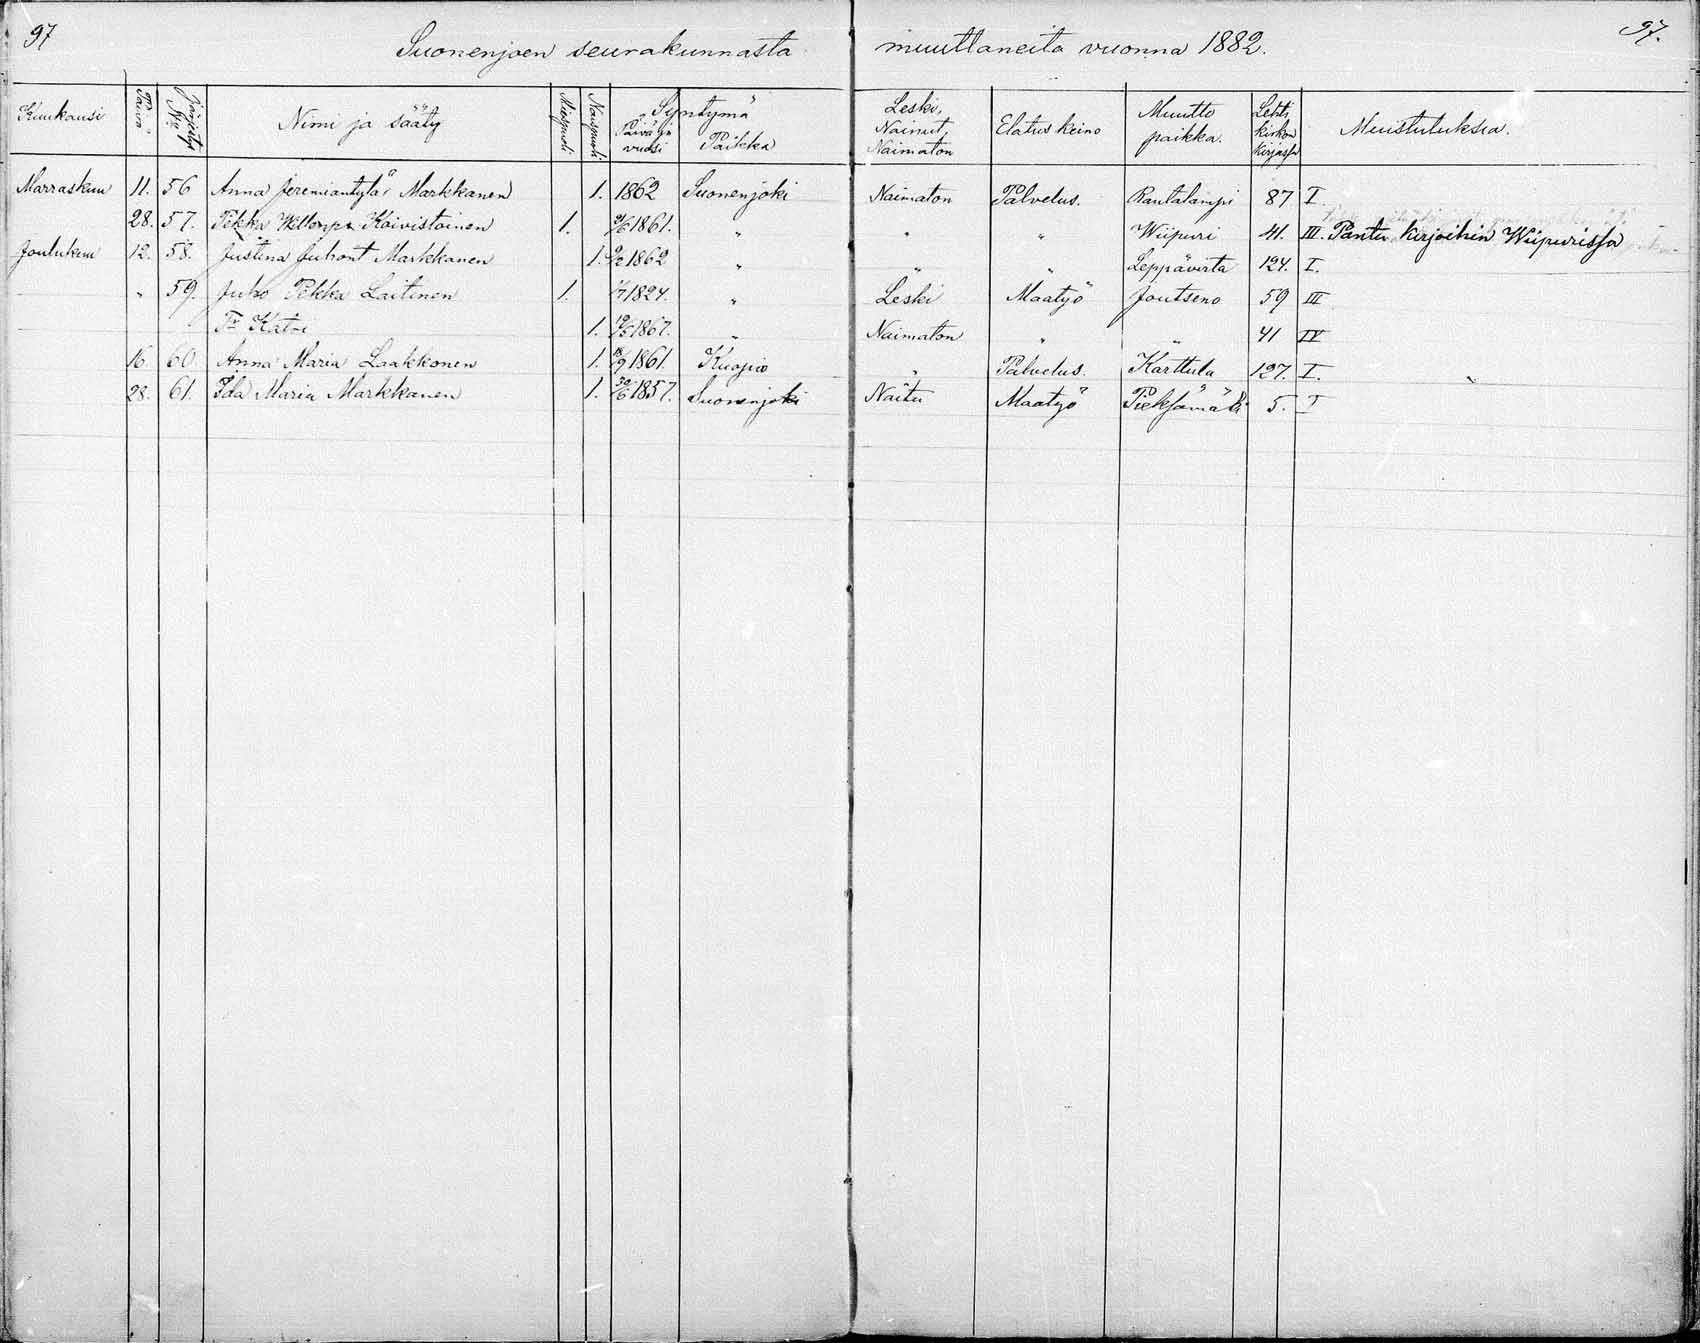 97
97.
Suonenjoen seurakunnasta muuttaneita vuonna 1882.
Kuukausi Päivä Järjestys Nro Nimi ja sääty Miespuoli Naispuoli Syntymä Päivä ja vuosi Paikka Leski, Nainut, Naimaton Elatus keino Muutto paikka. Lehti kirkon kirjassa Muistutuksia.
Marraskuu 11. 56 Anna Jeremiantytä Markkanen 1. 1862 Suonenjoki Naimaton Palvelus. Rautalampi 87 I.
28. 57. Pekka Koivistoinen 1. 1861. " " " Wiipuri 41. III. Pantu kirjoihin Wiipurissa
Joulukuu 12. 58. Justina Juhont Markkanen 1. 1862 " " " Leppävirta 124. I.
" 59. Juho Pekka Laitinen 1. 1824. " Leski Maatyö Joutseno 59 III
Tr Katri 1. 19/5 1867. " Naimaton " " 41 IV
16 60 Anna Maria Laakkonen 1. 18/9 1861. Kuopio " Palvelus. Karttula 127. I.
28. 61. Ida Maria Markkanen 1. 30/6 1857. Suonenjoki Naitu Maatyö Pieksämäki 5. I